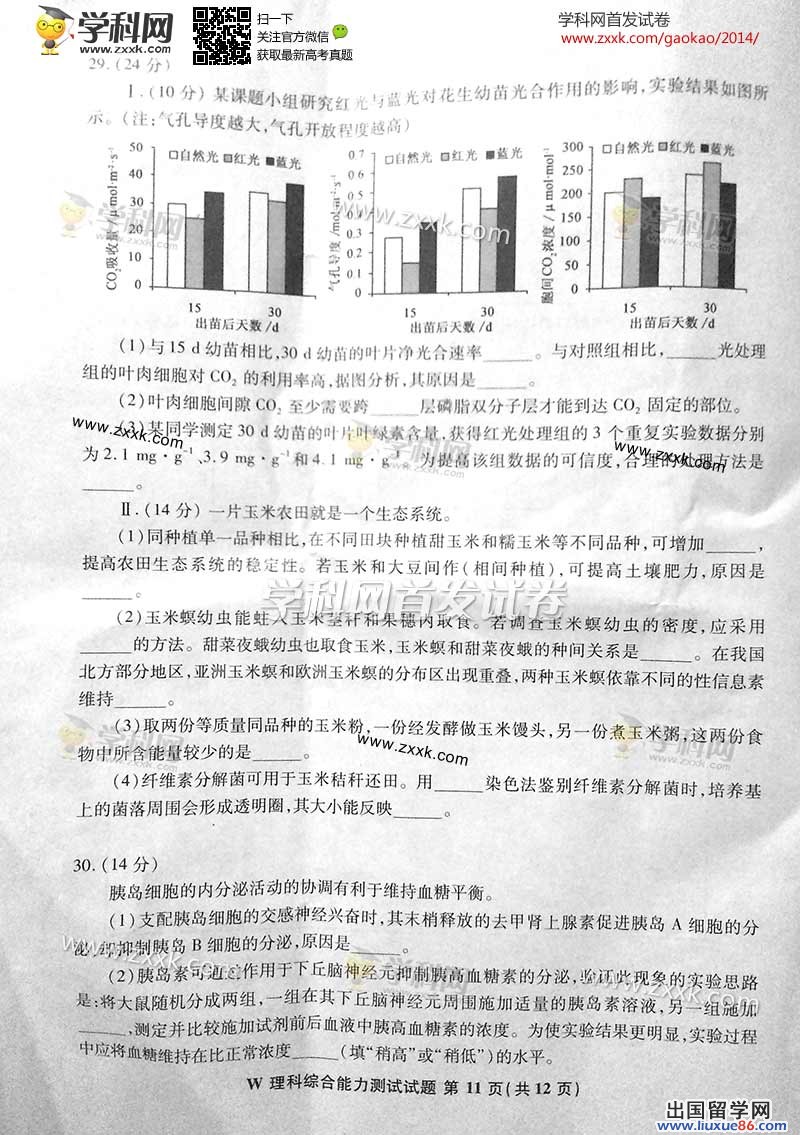 学科网
www.zxxk.com
扫一下
关注官方微信
获取最新高考真题
学科网首发试卷
www.zxxk.com/gaokao/2014/
29.(24 分)
Ⅰ.(10 分) 某课题小组研究红光与蓝光对花生幼苗光合作用的影响,实验结果如图所
示。(注:气孔导度越大,气孔开放程度越高)
CO₂吸收量/ μmol·m⁻²·s⁻¹
50
40
30
20
10
0
□自然光 ■红光 ■蓝光
15 30
出苗后天数 /d
气孔导度 /mol·m⁻²·s⁻¹
0.7
0.6
0.5
0.4
0.3
0.2
0.1
0
□自然光 ■红光 ■蓝光
15 30
出苗后天数 /d
胞间CO₂浓度 / μmol·mol⁻¹
300
250
200
150
100
50
0
□自然光 ■红光 ■蓝光
15 30
出苗后天数 /d
学科网
zxxk.com
www.zxxk.com
学科网
zxxk.com
(1)与 15 d 幼苗相比,30 d 幼苗的叶片净光合速率______。与对照组相比,______光处理
组的叶肉细胞对 CO₂ 的利用率高,据图分析,其原因是______。
(2)叶肉细胞间隙 CO₂ 至少需要跨______层磷脂双分子层才能到达 CO₂ 固定的部位。
(3)某同学测定 30 d 幼苗的叶片叶绿素含量,获得红光处理组的 3 个重复实验数据分别
www.zxxk.com
为 2.1 mg·g⁻¹、3.9 mg·g⁻¹和 4.1 mg·g⁻¹。为提高该组数据的可信度,合理的处理方法是
www.zxxk.com
www.zxxk.com
______。
Ⅱ.(14 分) 一片玉米农田就是一个生态系统。
(1)同种植单一品种相比,在不同田块种植甜玉米和糯玉米等不同品种,可增加______,
提高农田生态系统的稳定性。若玉米和大豆间作(相间种植),可提高土壤肥力,原因是
______。
学科网首发试卷
(2)玉米螟幼虫能蛀入玉米茎秆和果穗内取食。若调查玉米螟幼虫的密度,应采用
______的方法。甜菜夜蛾幼虫也取食玉米,玉米螟和甜菜夜蛾的种间关系是______。在我国
北方部分地区,亚洲玉米螟和欧洲玉米螟的分布区出现重叠,两种玉米螟依靠不同的性信息素
维持______。
(3)取两份等质量同品种的玉米粉,一份经发酵做玉米馒头,另一份煮玉米粥,这两份食
物中所含能量较少的是______。
学科网
zxxk.com
www.zxxk.com
学科网
zxxk.com
(4)纤维素分解菌可用于玉米秸秆还田。用______染色法鉴别纤维素分解菌时,培养基
上的菌落周围会形成透明圈,其大小能反映______。
30.(14 分)
胰岛细胞的内分泌活动的协调有利于维持血糖平衡。
(1)支配胰岛细胞的交感神经兴奋时,其末梢释放的去甲肾上腺素促进胰岛 A 细胞的分
泌,却抑制胰岛 B 细胞的分泌,原因是______。
www.zxxk.com
www.zxxk.com
(2)胰岛素可通过作用于下丘脑神经元抑制胰高血糖素的分泌,验证此现象的实验思路
是:将大鼠随机分成两组,一组在其下丘脑神经元周围施加适量的胰岛素溶液,另一组施加
______,测定并比较施加试剂前后血液中胰高血糖素的浓度。为使实验结果更明显,实验过程
中应将血糖维持在比正常浓度______(填“稍高”或“稍低”)的水平。
W 理科综合能力测试试题 第 11 页(共 12 页)
出国留学网
www.liuxue86.com